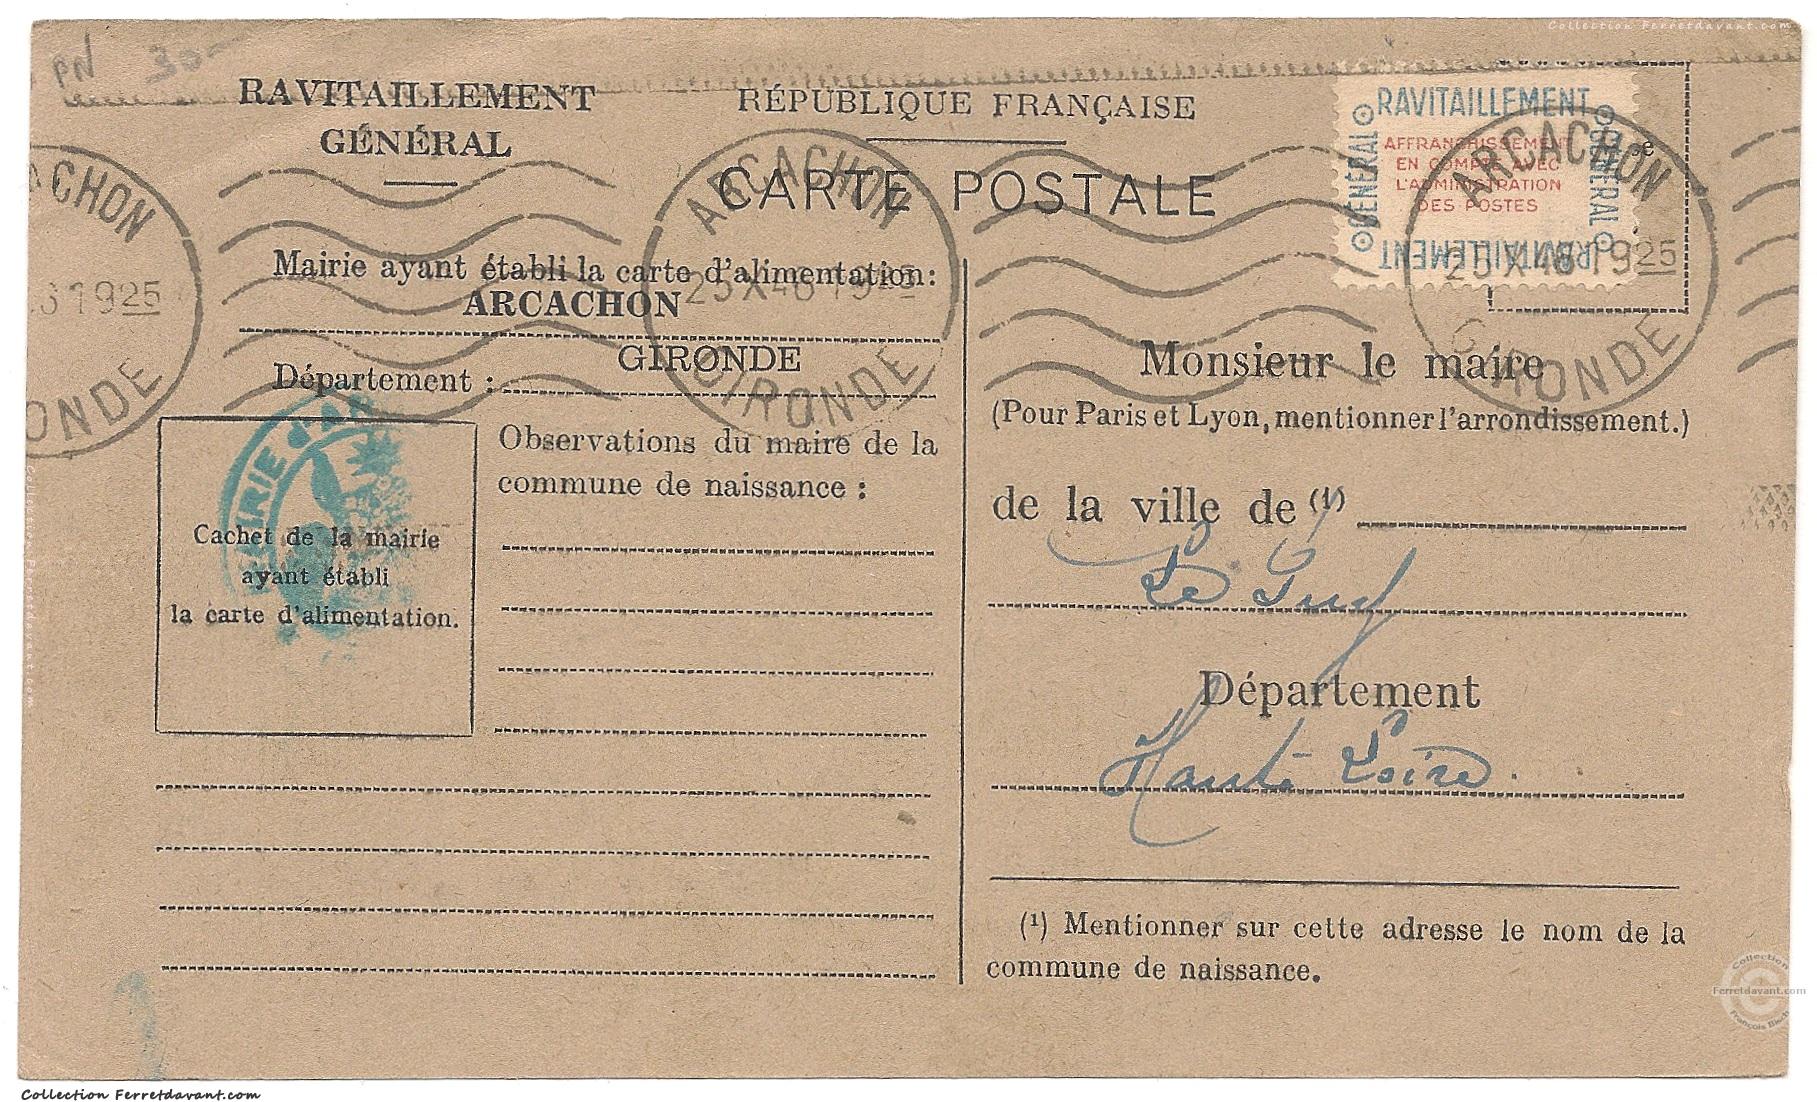 Collection Ferretdavant.com
PN 30-
RAVITAILLEMENT
GÉNÉRAL
RÉPUBLIQUE FRANÇAISE
CARTE POSTALE
RAVITAILLEMENT
GÉNÉRAL
AFFRANCHISSEMENT
EN COMPTE AVEC
L'ADMINISTRATION
DES POSTES
GÉNÉRAL
RAVITAILLEMENT
ACHON
1925
ONDE
ARCACHON
25 X 46 1925
GIRONDE
ARCACHON
25 X 46 1925
GIRONDE
Mairie ayant établi la carte d'alimentation:
ARCACHON
Département : GIRONDE
MAIRIE D'AR
Cachet de la mairie
ayant établi
la carte d'alimentation.
Observations du maire de la
commune de naissance :
Monsieur le maire
(Pour Paris et Lyon, mentionner l'arrondissement.)
de la ville de (1)
Le Puy
Département
Haute Loire.
(1) Mentionner sur cette adresse le nom de la
commune de naissance.
Collection Ferretdavant.com
Collection
Ferretdavant.com
François Bisch
Collection Ferretdavant.com